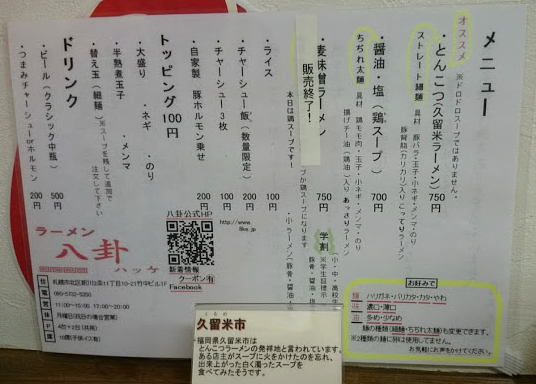 メニュー
オススメ
※ドロドロスープではありません。
・とんこつ(久留米ラーメン)750円
ストレート細麺
具材 豚バラ・玉子・小ネギ・メンマ・のり
豚背脂(カリカリ)入り こってりラーメン
・醤油・塩(鶏スープ) 700円
ちぢれ太麺
具材 鶏モモ肉・玉子・小ネギ・メンマ・のり
揚げチー油(鶏油)入り あっさりラーメン
・麦味噌ラーメン 750円
販売終了!
本日は鶏スープです!
学割
・ライス 100円
・チャーシュー飯(数量限定) 200円
・チャーシュー3枚 200円
・自家製 豚ホルモン乗せ 200円
トッピング100円
・大盛り ・ネギ ・のり
・半熟煮玉子 ・メンマ
・替え玉(細麺)※スープを残して追加で注文して下さい
ドリンク
・ビール(クラシック中瓶) 500円
・つまみチャーシューorホルモン 200円
ラーメン
八卦
ハッケ
八卦公式HP
新着情報
クーポン有
Facebook
11:00~15:00 17:00~20:00
4台+2台(共用)
お好みで
麺 ハリガネ・バリカタ・カタ・やわ
味 濃口・薄口
油 多め・少なめ
麺の種類(細麺・ちぢれ太麺)も変更できます。
※2種類の麺に別は使用してません。
お気軽にお声をかけてください。
くるめ
久留米市
福岡県久留米市は
とんこつラーメンの発祥地と言われています。
ある店主がスープに火をかけたのを忘れ、
出来上がった白く濁ったスープを
食べてみたそうです。